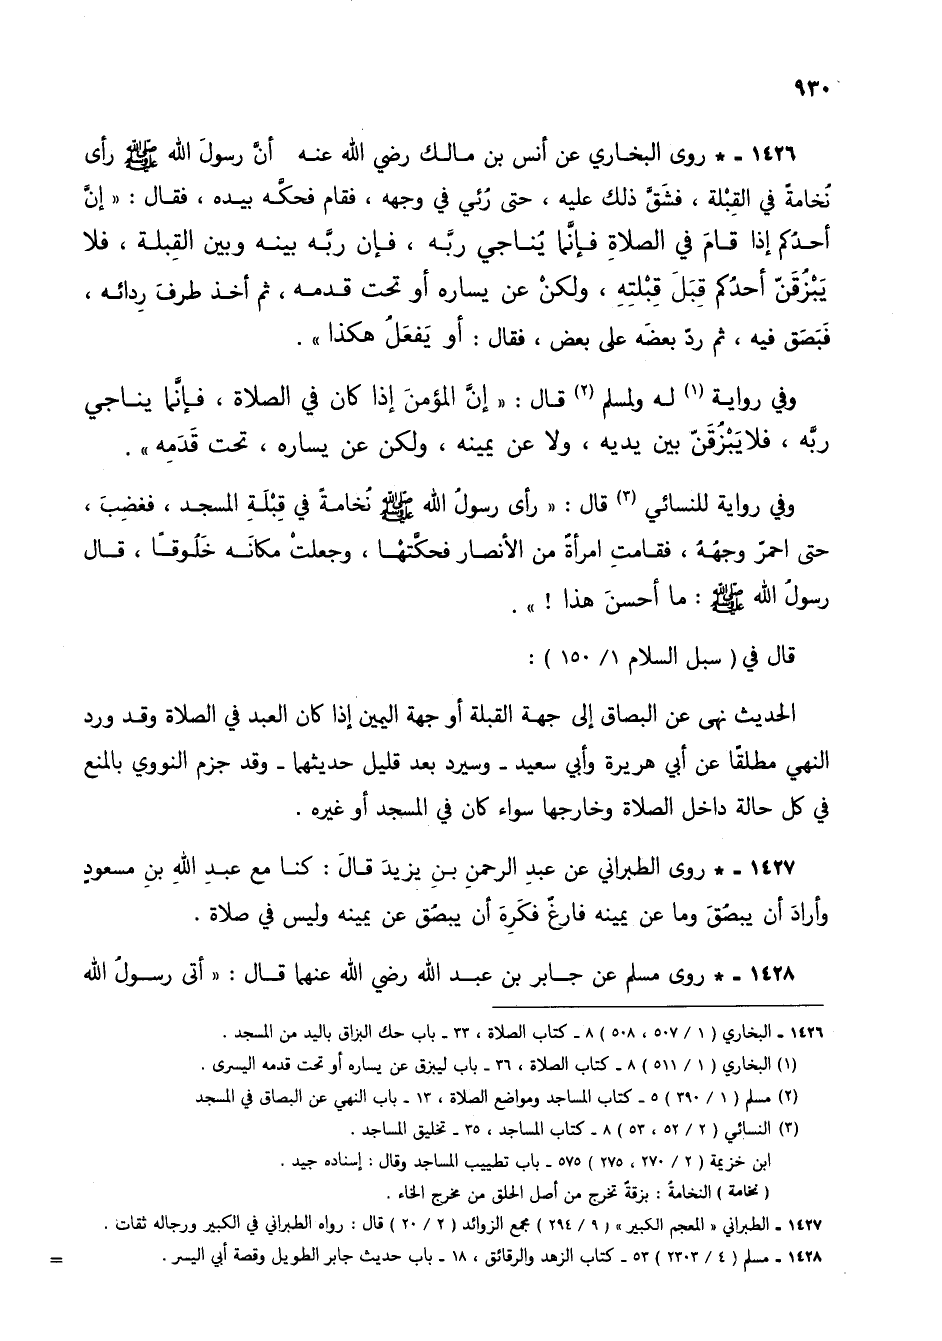 ٩٣٠
١٤٢٦ - * روى البخاري عن أنس بن مالك رضي الله عنه أنَّ رسولَ الله ﷺ رأى
نُخامةً في القِبْلة ، فشَقَّ ذلك عليه ، حتى رُئي في وجهه ، فقام فحكَّه بيده ، فقال : « إنَّ
أحدُكم إذا قامَ في الصلاةِ فإنَّما يُناجي ربَّه ، فإن ربَّه بينه وبين القبلة ، فلا
يَبْزُقَنّ أحدُكم قِبَلَ قِبْلتِهِ ، ولكنْ عن يساره أو تحت قدمه ، ثم أخذ طرفَ رِدائه ،
فَبَصَق فيه ، ثم ردّ بعضَه على بعض ، فقال : أو يَفعَلُ هكذا » .
وفي رواية (١) له ولمسلم (٢) قال : « إنَّ المؤمنَ إذا كان في الصلاة ، فإنَّما يناجي
ربَّه ، فلا يَبْزُقَنّ بين يديه ، ولا عن يمينه ، ولكن عن يساره ، تحت قَدَمِه » .
وفي رواية للنسائي (٣) قال : « رأى رسولُ الله ﷺ نُخامةً في قِبْلَةِ المسجد ، فغضِبَ ،
حتى احمرّ وجهُهُ ، فقامتِ امرأةٌ من الأنصار فحكَّتْها ، وجعلتْ مكانَه خَلُوقًا ، قال
رسولُ الله ﷺ : ما أحسنَ هذا ! » .
قال في ( سبل السلام ١/ ١٥٠ ) :
الحديث نهى عن البصاق إلى جهة القبلة أو جهة اليمين إذا كان العبد في الصلاة وقد ورد
النهي مطلقًا عن أبي هريرة وأبي سعيد - وسيرد بعد قليل حديثهما - وقد جزم النووي بالمنع
في كل حالة داخل الصلاة وخارجها سواء كان في المسجد أو غيره .
١٤٢٧ - * روى الطبراني عن عبدِ الرحمنِ بنِ يزيدَ قالَ : كنا مع عبدِ اللهِ بنِ مسعودٍ
وأرادَ أن يبصُقَ وما عن يمينه فارغٌ فكَرِهَ أن يبصُق عن يمينه وليس في صلاة .
١٤٢٨ - * روى مسلم عن جابر بن عبد الله رضي الله عنهما قال : « أتى رسولُ الله
١٤٢٦ - البخاري ( ١ / ٥٠٧ ، ٥٠٨ ) ٨ - كتاب الصلاة ، ٣٣ - باب حك البزاق باليد من المسجد .
(١) البخاري ( ١ / ٥١١ ) ٨ - كتاب الصلاة ، ٣٦ - باب ليبزق عن يساره أو تحت قدمه اليسرى .
(٢) مسلم ( ١ / ٣٩٠ ) ٥ - كتاب المساجد ومواضع الصلاة ، ١٣ - باب النهي عن البصاق في المسجد
(٣) النسائي ( ٢ / ٥٢ ، ٥٣ ) ٨ - كتاب المساجد ، ٣٥ - تخليق المساجد .
ابن خزيمة ( ٢ / ٢٧٠ ، ٢٧٥ ) ٥٧٥ - باب تطييب المساجد وقال : إسناده جيد .
( نخامة ) النخامةُ : بزقةٌ تخرج من أصل الحلق من مخرج الخاء .
١٤٢٧ - الطبراني « المعجم الكبير » ( ٩ / ٢٩٤ ) مجمع الزوائد ( ٢ / ٢٠ ) قال : رواه الطبراني في الكبير ورجاله ثقات .
١٤٢٨ - مسلم ( ٤ / ٢٣٠٣ ) ٥٣ - كتاب الزهد والرقائق ، ١٨ - باب حديث جابر الطويل وقصة أبي اليسر . =